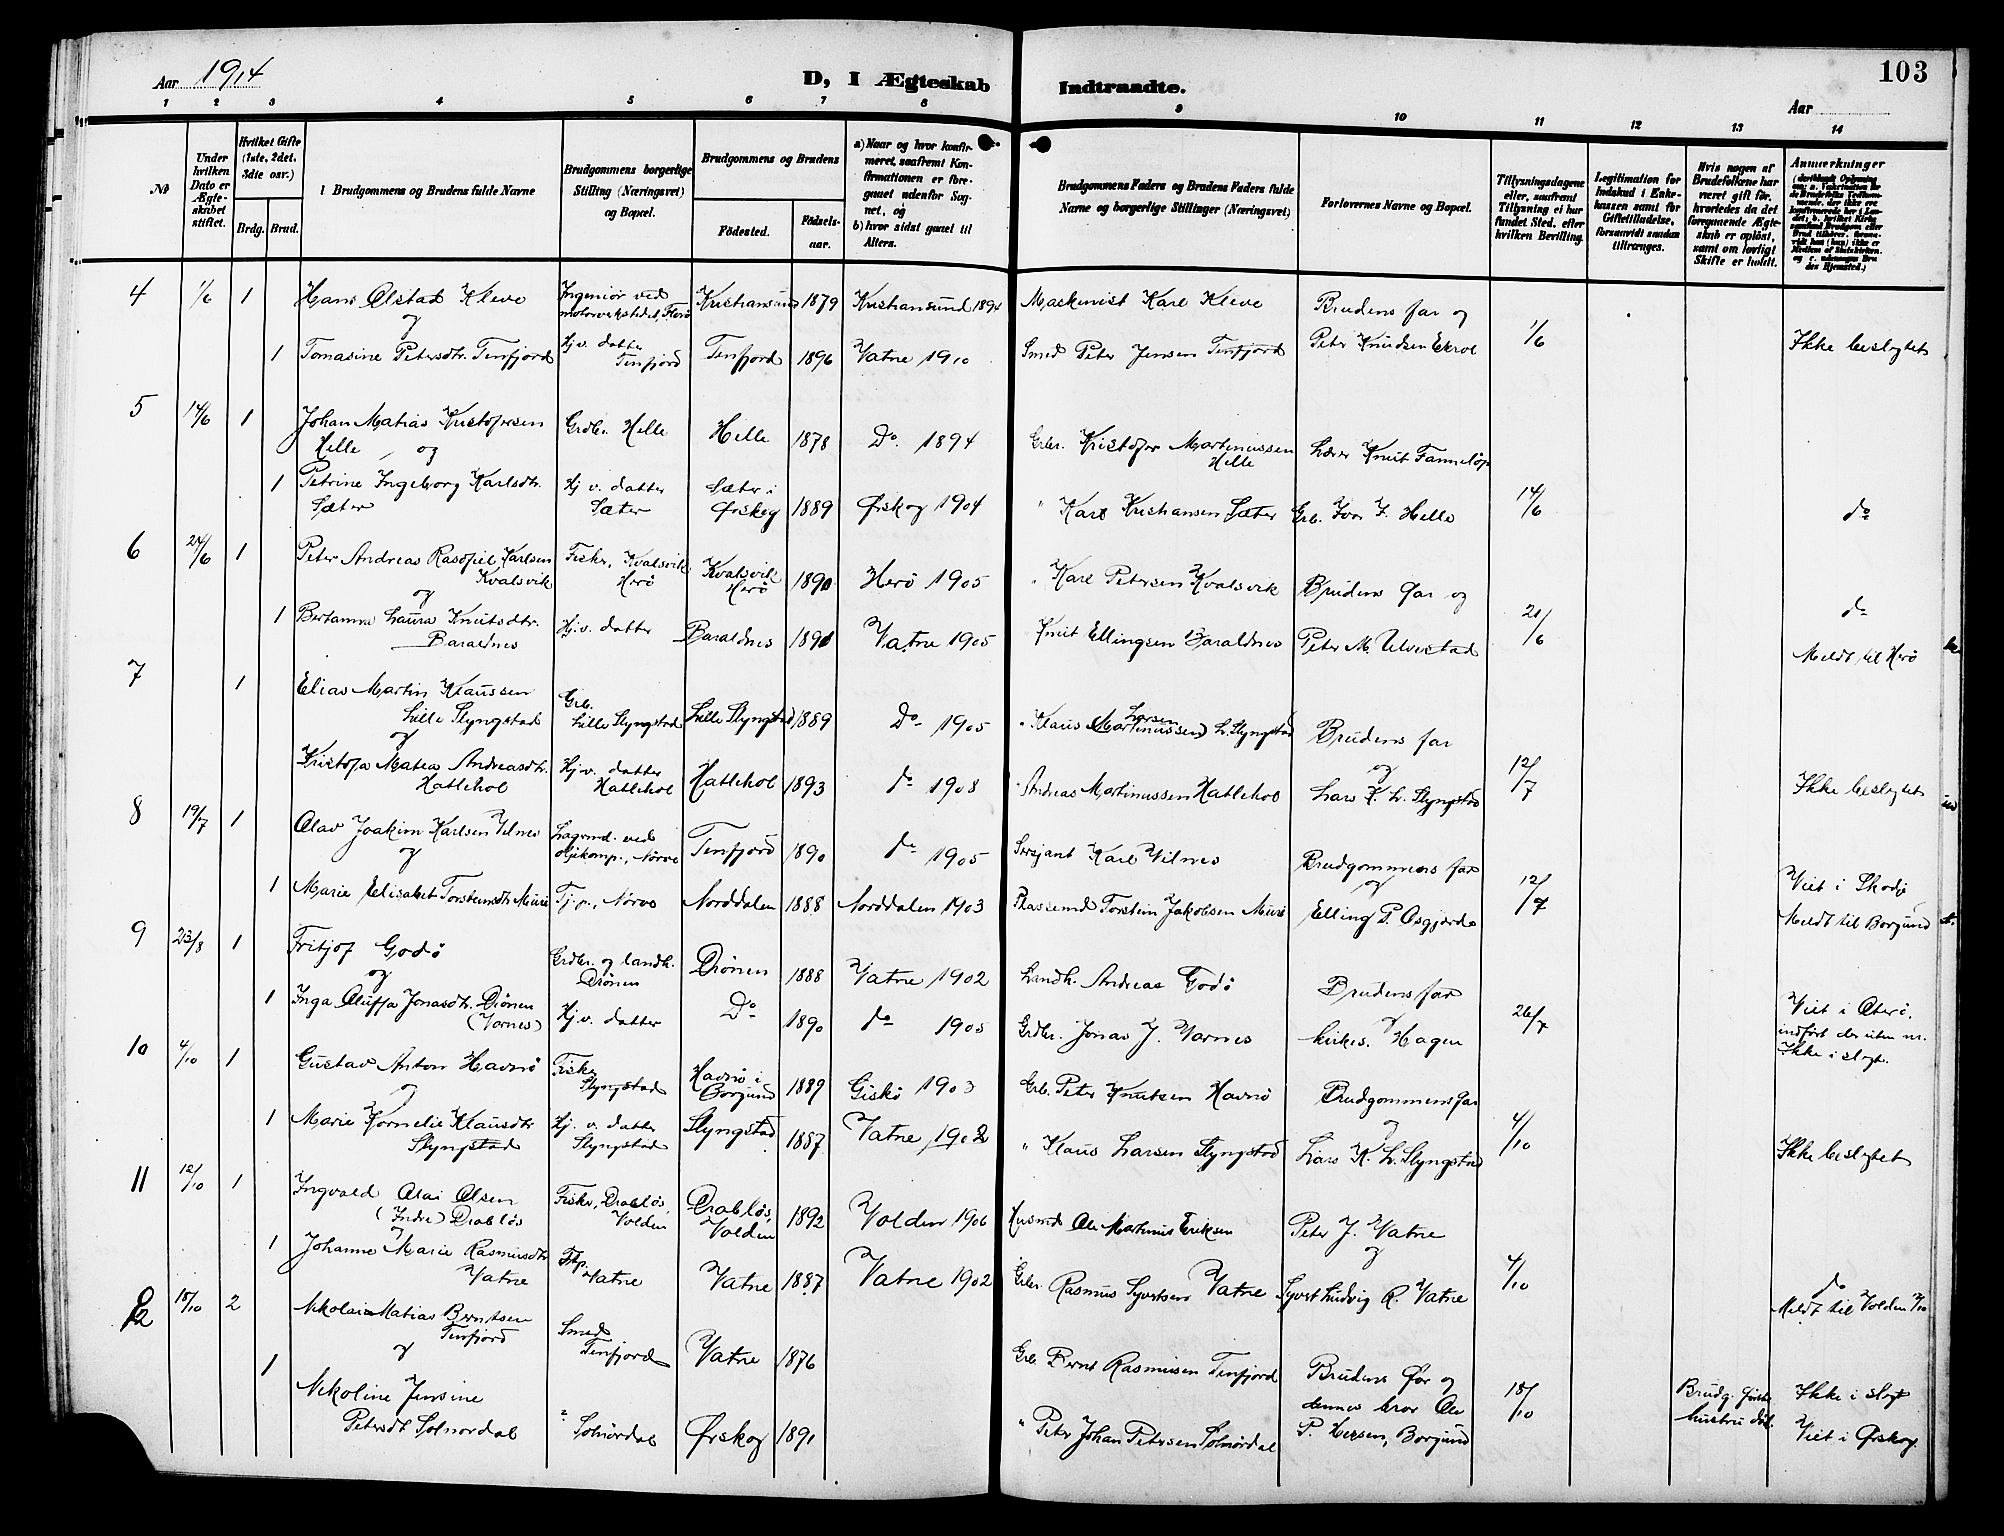 Aar 1914
D, I Ægteskab
Indtraadte.
103
Aar
1 2 3 4 5 6 7 8 9 10 11 12 13 14
No
Under hvilken Dato er Ægteskabet stiftet.
Hvilket Gifte (1ste, 2det, 3die osv.)
Brdg. Brud.
Brudgommens og Brudens fulde Navne
Brudgommens borgerlige Stilling (Næringsvei) og Bopæl.
Brudgommens og Brudens
Födested.
Födselsaar.
a) Naar og hvor konfirmeret, saafremt Konfirmationen er foregaaet udenfor Sognet, og
b) hvor sidst gaaet til Alters.
Brudgommens Faders og Brudens Faders fulde Navne og borgerlige Stillinger (Næringsvei)
Forlovernes Navne og Bopæl.
Tillysningsdagene eller, saafremt Tillysning ei har fundet Sted, efter hvilken Bevilling.
Legitimation for Indskud i Enkekassen samt for Giftetilladelse, forsaavidt saadan tiltrænges.
Hvis nogen af Brudefolkene har været gift før, hvorledes da det foregaaende Ægteskab er oplöst, samt om lovligt Skifte er holdt.
Anmærkninger
4 1/6 1 Hans Olstad Kleve Ingeniør ved motorverkstedet, Herø Kristiansund 1879 Kristiansund 1894 Maskinist Karl Kleve Brudens far og
og
1 Tomasine Petersdtr. Tenfjord Hj. v. datter Tenfjord Tenfjord 1896 Vatne 1910 Smed Peter Jensen Tenfjord Peter Knudsen Ekrol 1/6 Ikke beslegtet
5 14/6 1 Johan Matias Kristofersen Helle og Grdbr. Helle Helle 1878 Do 1894 Grbr. Kristofer Martinussen Helle Lærer Knut Fanneløp
1 Petrine Ingeborg Karlsdtr. Sæter Hj v. datter Sæter Sæter i Ørskog 1889 Ørskog 1904 " Karl Kristiansen Sæter Grb. Ivar I. Helle 14/6 do
6 24/6 1 Peter Andreas Rasofiel Karlsen Kvalsvik Fisker, Kvalsvik Herø Kvalsvik Herø 1890 Herø 1905 " Karl Petersen Kvalsvik Brudens far og
og
1 Bertanna Laura Knutsdtr. Baraldnes Hj. v. datter Baraldnes 1891 Vatne 1905 Knut Ellingsen Baraldnes Peter M. Ulvestad 21/6 do
Meldt til Herø
7 1 Elias Martin Klaussen Lille Slyngstad Grb. Lille Slyngstad Lille Slyngstad 1889 Do 1905 " Klaus (Martinussen) Larsen L. Slyngstad Brudens far
og
Kristofa Matea Andreasdtr. Hatlehol Hj. v. datter Hatlehol Hatlehol 1893 do 1908 " Andreas Martinussen Hatlehol og Lars K. L. Slyngstad 12/7 Ikke beslegtet
8 19/7 1 Olav Joakim Karlsen Vilnes Lagermd. ved oljekomp., Nørve Tenfjord 1890 do 1905 Sersjant Karl Vilnes Brudgommens far
og
1 Marie Elisabet Torsteinsdtr. Muri Tj.p., Nørve Norddalen 1888 Norddalen 1903 Plassemd Torstein Jakobsen Muri og Elling P. Osgjerde 12/7 Viet i Skodje
Meldt til Borgund
9 23/8 1 Fritjof Godø Grdbr. og landh. Drønen Drønen 1888 Vatne 1902 Landh. Andreas Godø Brudens far
og
1 Inga Oluffa Jonasdtr. Drønen (Vornes) Hj. v. datter Do 1890 do 1905 Grdbr. Jonas J. Vornes og kirkes. Hagen 26/7 Viet i
indført der uten nr.
Ikke i slegt.
10 4/10 1 Gustav Anton Havnø Fisker Slyngstad Havnø i Borgund 1889 Giskø 1903 Grb. Peter Knutsen Havnø Brudgommens far
og
1 Marie Kornelie Klausdtr Slyngstad Hj. v. datter Slyngstad Slyngstad 1887 Vatne 1902 " Klaus Larsen Slyngstad og Lars K. L. Slyngstad 4/10 Ikke beslegtet
11 12/10 1 Ingvald Olai Olsen (Indre) Drabløs Fisker, Drabløs, Volden Drabløs, Volden 1892 Volden 1906 Husmd Ole Martinus Eriksen Peter J. Vatne
og
1 Johanne Marie Rasmusdtr Vatne Tjp. Vatne Vatne 1887 Vatne 1902 Grbr. Rasmus Syvertsen Vatne Syvert Ludvig R. Vatne 4/10 do
Meldt til Volden
12 18/10 2 Nikolai Matias Berntsen Tenfjord Smed Tenfjord Vatne 1876 Grb. Bernt Rasmusen Tenfjord Brudens far og
og
1 Nikoline Jensine Petersdt Solnørdal Solnørdal Ørskog 1891 " Peter Johan Petersen Solnørdal dennes bror Ole P. Borgund 18/10 Brudg. første hustru død. Ikke i slegt
Viet i Ørskog.